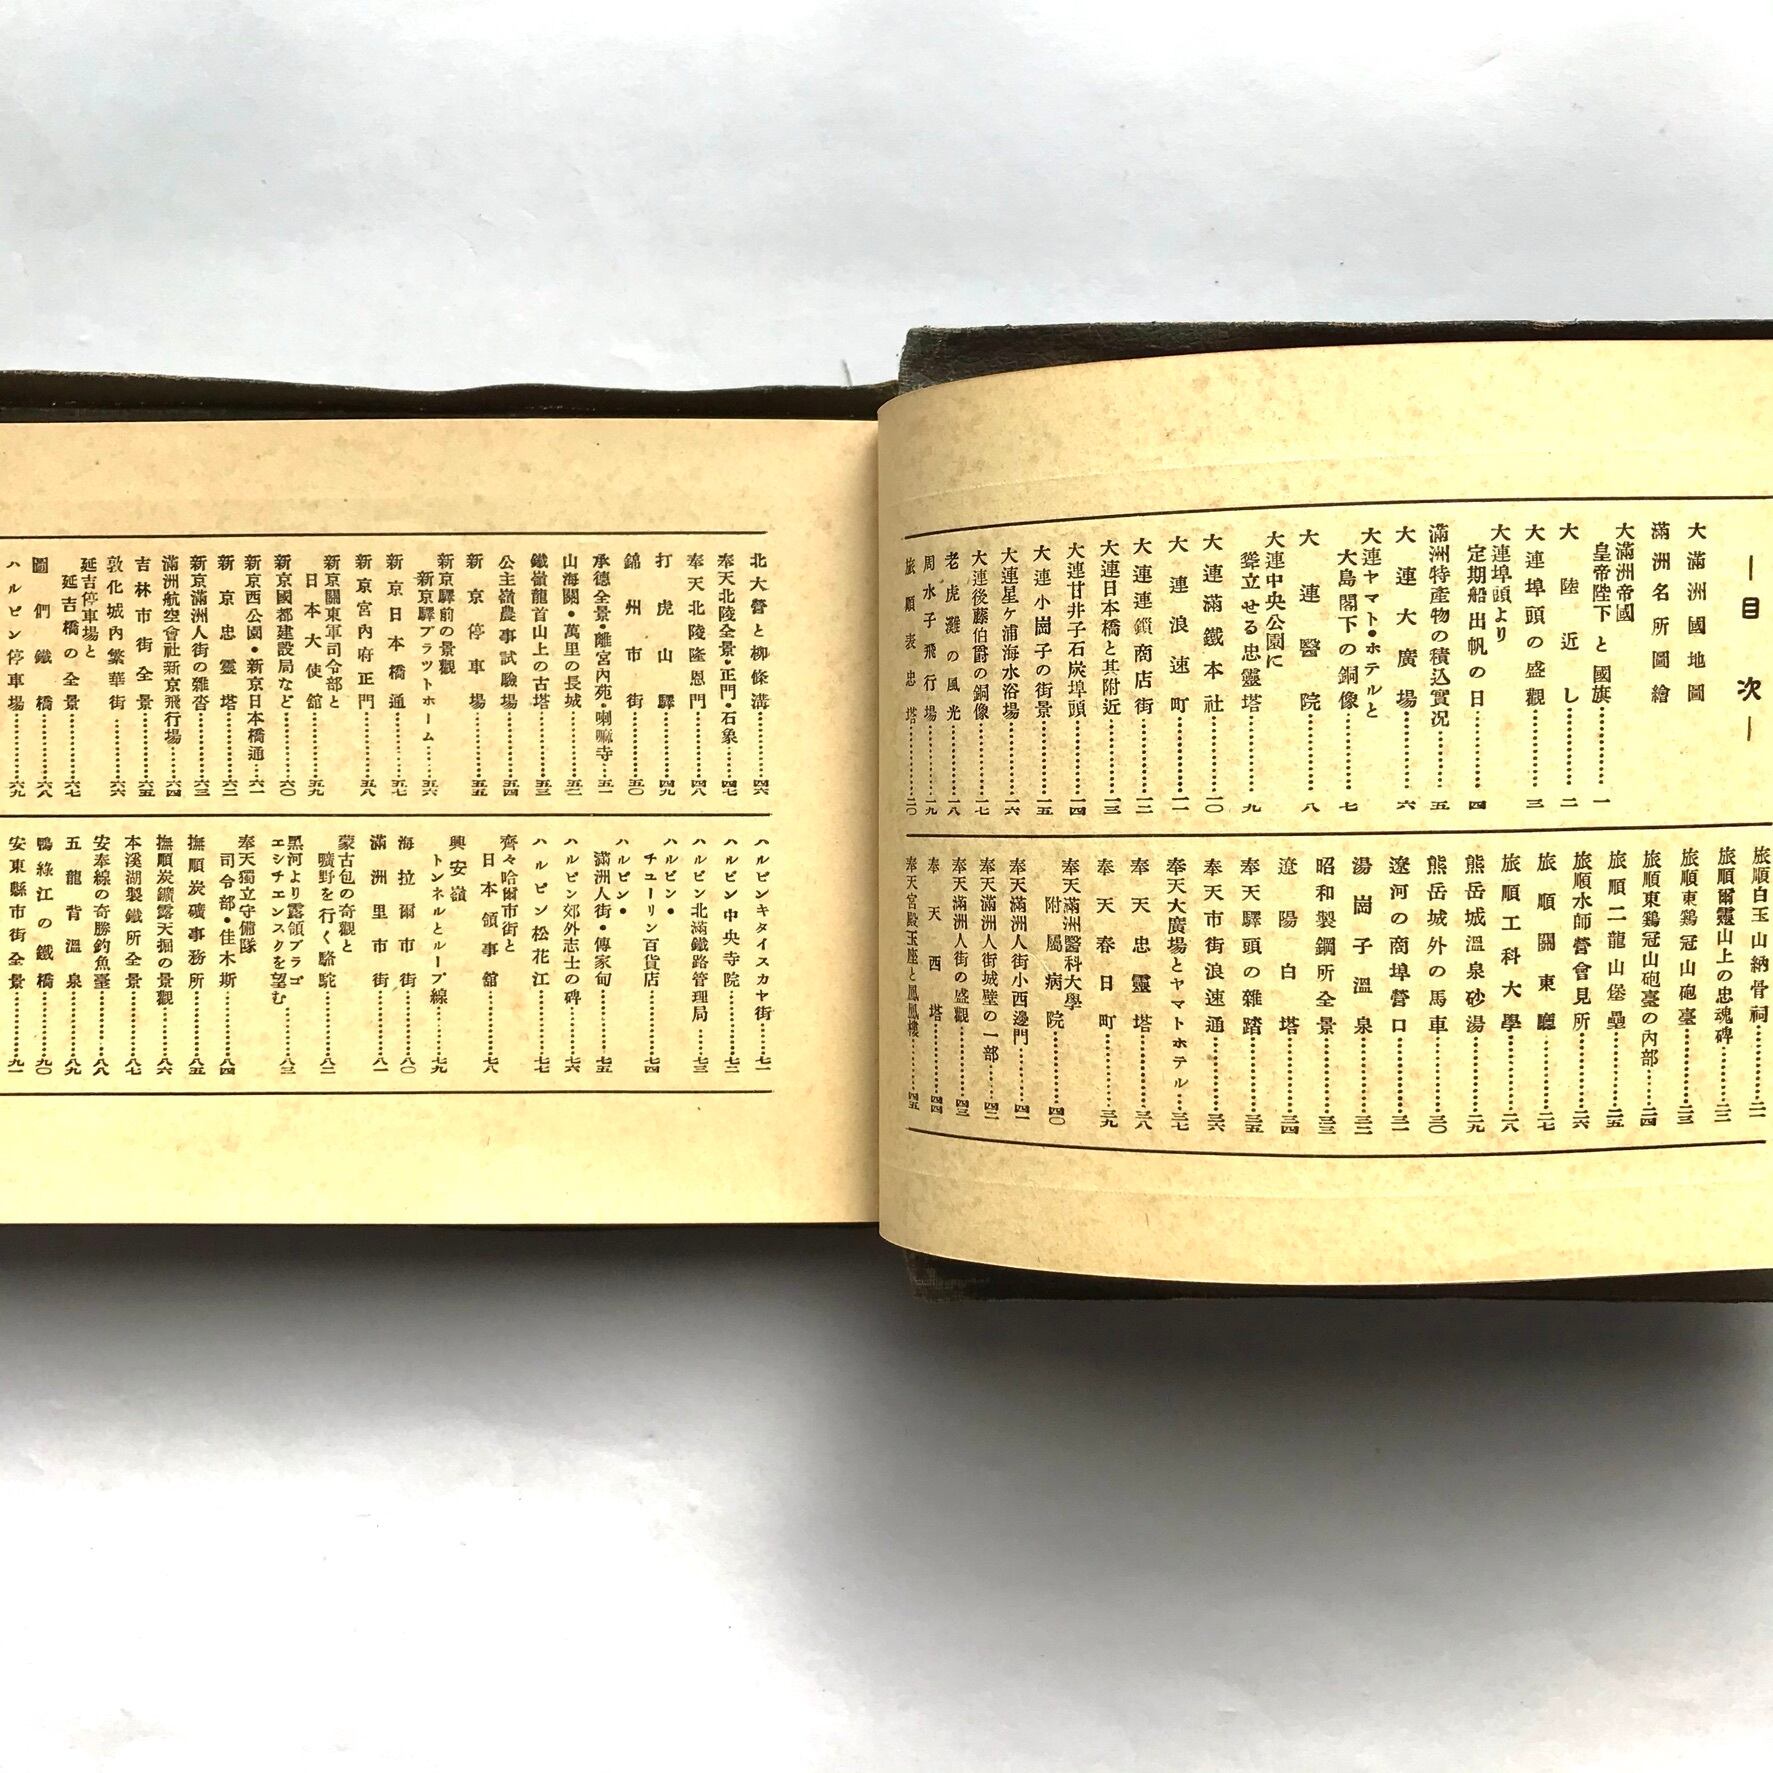 ―目次―
大滿洲國地圖
滿洲名所圖繪
大滿洲帝國
皇帝陛下と國旗…………一
大陸近し…………二
大連埠頭の盛觀…………三
大連埠頭より
定期船出帆の日…………四
滿洲特產物の積込實況…………五
大連大廣場…………六
大連ヤマト・ホテルと
大島閣下の銅像…………七
大連醫院…………八
大連中央公園に
聳立せる忠靈塔…………九
大連滿鐵本社…………一〇
大連浪速町…………一一
大連連鎖商店街…………一二
大連日本橋と其附近…………一三
大連甘井子石炭埠頭…………一四
大連小崗子の街景…………一五
大連星ケ浦海水浴場…………一六
大連後藤伯爵の銅像…………一七
老虎灘の風光…………一八
周水子飛行場…………一九
旅順表忠塔…………二〇
旅順白玉山納骨祠…………二一
旅順爾靈山上の忠魂碑…………二二
旅順東鷄冠山砲臺…………二三
旅順東鷄冠山砲臺の內部…………二四
旅順二龍山堡壘…………二五
旅順水師營會見所…………二六
旅順關東廳…………二七
旅順工科大學…………二八
熊岳城溫泉砂湯…………二九
熊岳城外の馬車…………三〇
遼河の商埠營口…………三一
湯崗子溫泉…………三二
昭和製鋼所全景…………三三
遼陽白塔…………三四
奉天驛頭の雜踏…………三五
奉天市街浪速通…………三六
奉天大廣場とヤマトホテル…三七
奉天忠靈塔…………三八
奉天春日町…………三九
奉天滿洲醫科大學
附屬病院…………四〇
奉天滿洲人街小西邊門…………四一
奉天滿洲人街城壁の一部…………四二
奉天滿洲人街の盛觀…………四三
奉天西塔…………四四
奉天宮殿玉座と鳳凰樓…………四五
北大營と柳條溝…………四六
奉天北陵全景・正門・石象…四七
奉天北陵隆恩門…………四八
打虎山驛…………四九
錦州市街…………五〇
承德全景・離宮內苑・喇嘛寺…五一
山海關・萬里の長城…………五二
鐵嶺龍首山上の古塔…………五三
公主嶺農事試驗場…………五四
新京停車場…………五五
新京驛前の景觀
新京驛プラツトホーム……五六
新京日本橋通…………五七
新京宮內府正門…………五八
新京關東軍司令部と
日本大使館…………五九
新京國都建設局など…………六〇
新京西公園・新京日本橋通…六一
新京忠靈塔…………六二
新京滿洲人街の雜沓…………六三
滿洲航空會社新京飛行場……六四
吉林市街全景…………六五
敦化城內繁華街…………六六
延吉停車場と
延吉橋の全景…………六七
圖們鐵橋…………六八
ハルピン停車場…………六九
ハルピンキタイスカヤ街……七一
ハルピン中央寺院…………七二
ハルピン北滿鐵路管理局……七三
ハルピン・
チユーリン百貨店…………七四
ハルピン・
滿洲人街・傳家甸…………七五
ハルピン郊外志士の碑…………七六
ハルピン松花江…………七七
齊々哈爾市街と
日本領事館…………七八
興安嶺
トンネルとループ線…………七九
海拉爾市街…………八〇
滿洲里市街…………八一
蒙古包の奇觀と
曠野を行く駱駝…………八二
黑河より露領ブラゴ
エシチエンスクを望む……八三
奉天獨立守備隊
司令部・佳木斯…………八四
撫順炭礦事務所…………八五
撫順炭鑛露天掘の景觀…………八六
本溪湖製鐵所全景…………八七
安奉線の奇勝釣魚臺…………八八
五龍背溫泉…………八九
鴨綠江の鐵橋…………九〇
安東縣市街全景…………九一